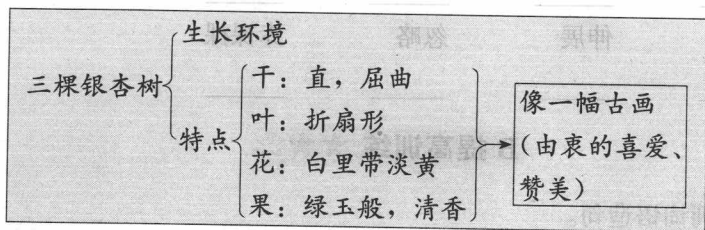 三棵银杏树
生长环境
特点
干：直，屈曲
叶：折扇形
花：白里带淡黄
果：绿玉般，清香
像一幅古画
（由衷的喜爱、
赞美）